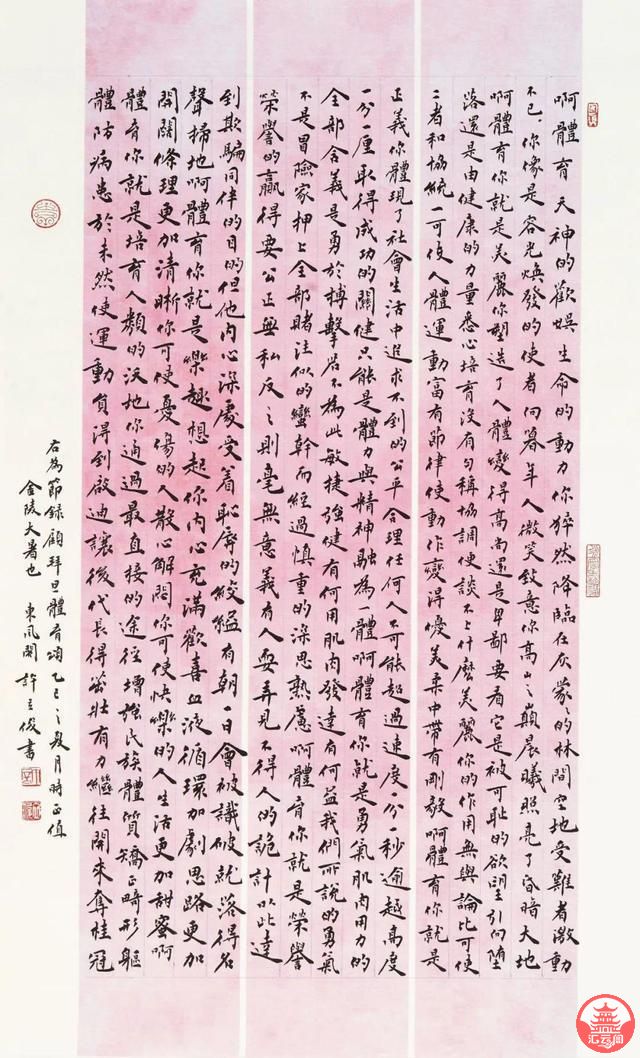 啊體育天神的歡娛生命的動力你猝然降臨在灰蒙々的林間空地受難者激動
不已你像是容光煥發的使者向暮年人微笑致意你高山之巔晨曦照亮了昏暗大地
啊體育你就是美麗你塑造了人體變得高尚還是卑鄙要看它是被可恥的欲望引向墮
落還是由健康的力量悉心培育沒有勻稱協調便談不上什麼美麗你的作用無與論比可使
二者和協統一可使人體運動富有節律使動作變得優美柔中帶有剛毅啊體育你就是
正義你體現了社會生活中追求不到的公平合理任何人不可能超過速度一分一秒逾越高度
一分一厘取得成功的關健只能是體力與精神融為一體啊體育你就是勇氣肌肉用力的
全部含義是勇於搏擊若不為此敏捷強健有何用肌肉發達有何益我們所說的勇氣
不是冒險家押上全部賭注似的蠻幹而經過慎重的深思熟慮啊體育你就是榮譽
榮譽的贏得要公正無私反之則毫無意義有人耍弄見不得人的詭計以此達
到欺騙同伴的目的但他内心深處受着恥辱的絞縊有朝一日會被識破就落得名
聲掃地啊體育你就是樂趣想起你内心充滿歡喜血液循環加劇思路更加
開闊條理更加清晰你可使憂傷的人散心解悶你可使快樂的人生活更加甜蜜啊
體育你就是培育人類的沃地你通過最直接的途徑增強民族體質矯正畸形軀
體防病患於未然使運動員得到啟迪讓後代長得茁壯有力繼往開來奪桂冠
右為節錄顧拜旦體育頌乙巳之夏月時正值
金陵大暑也 東風閣 許立俊書
汇云阁